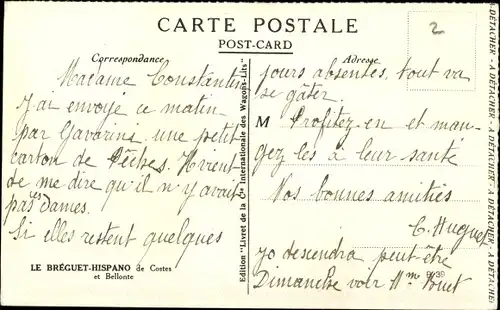 CARTE POSTALE
POST-CARD
Correspondance
Adresse
2
Madame Constantin
J'ai envoyé ce matin
par Gavarini une petit
carton de Pêches. Il vient
de me dire qu'il n'y avait
pas ces Dames.
Si elles restent quelques
LE BRÉGUET-HISPANO de Costes
et Bellonte
Edition "Livret de la Cie Internationale des Wagons-Lits"
jours absentes, tout va
se gâter.
M Profitez en et man-
gez les à leur santé
Nos bonnes amitiés
descendra peut-être
Dimanche voir Mme
A DÉTACHER - A DÉTACHER - A DÉTACHER - A DÉTACHER